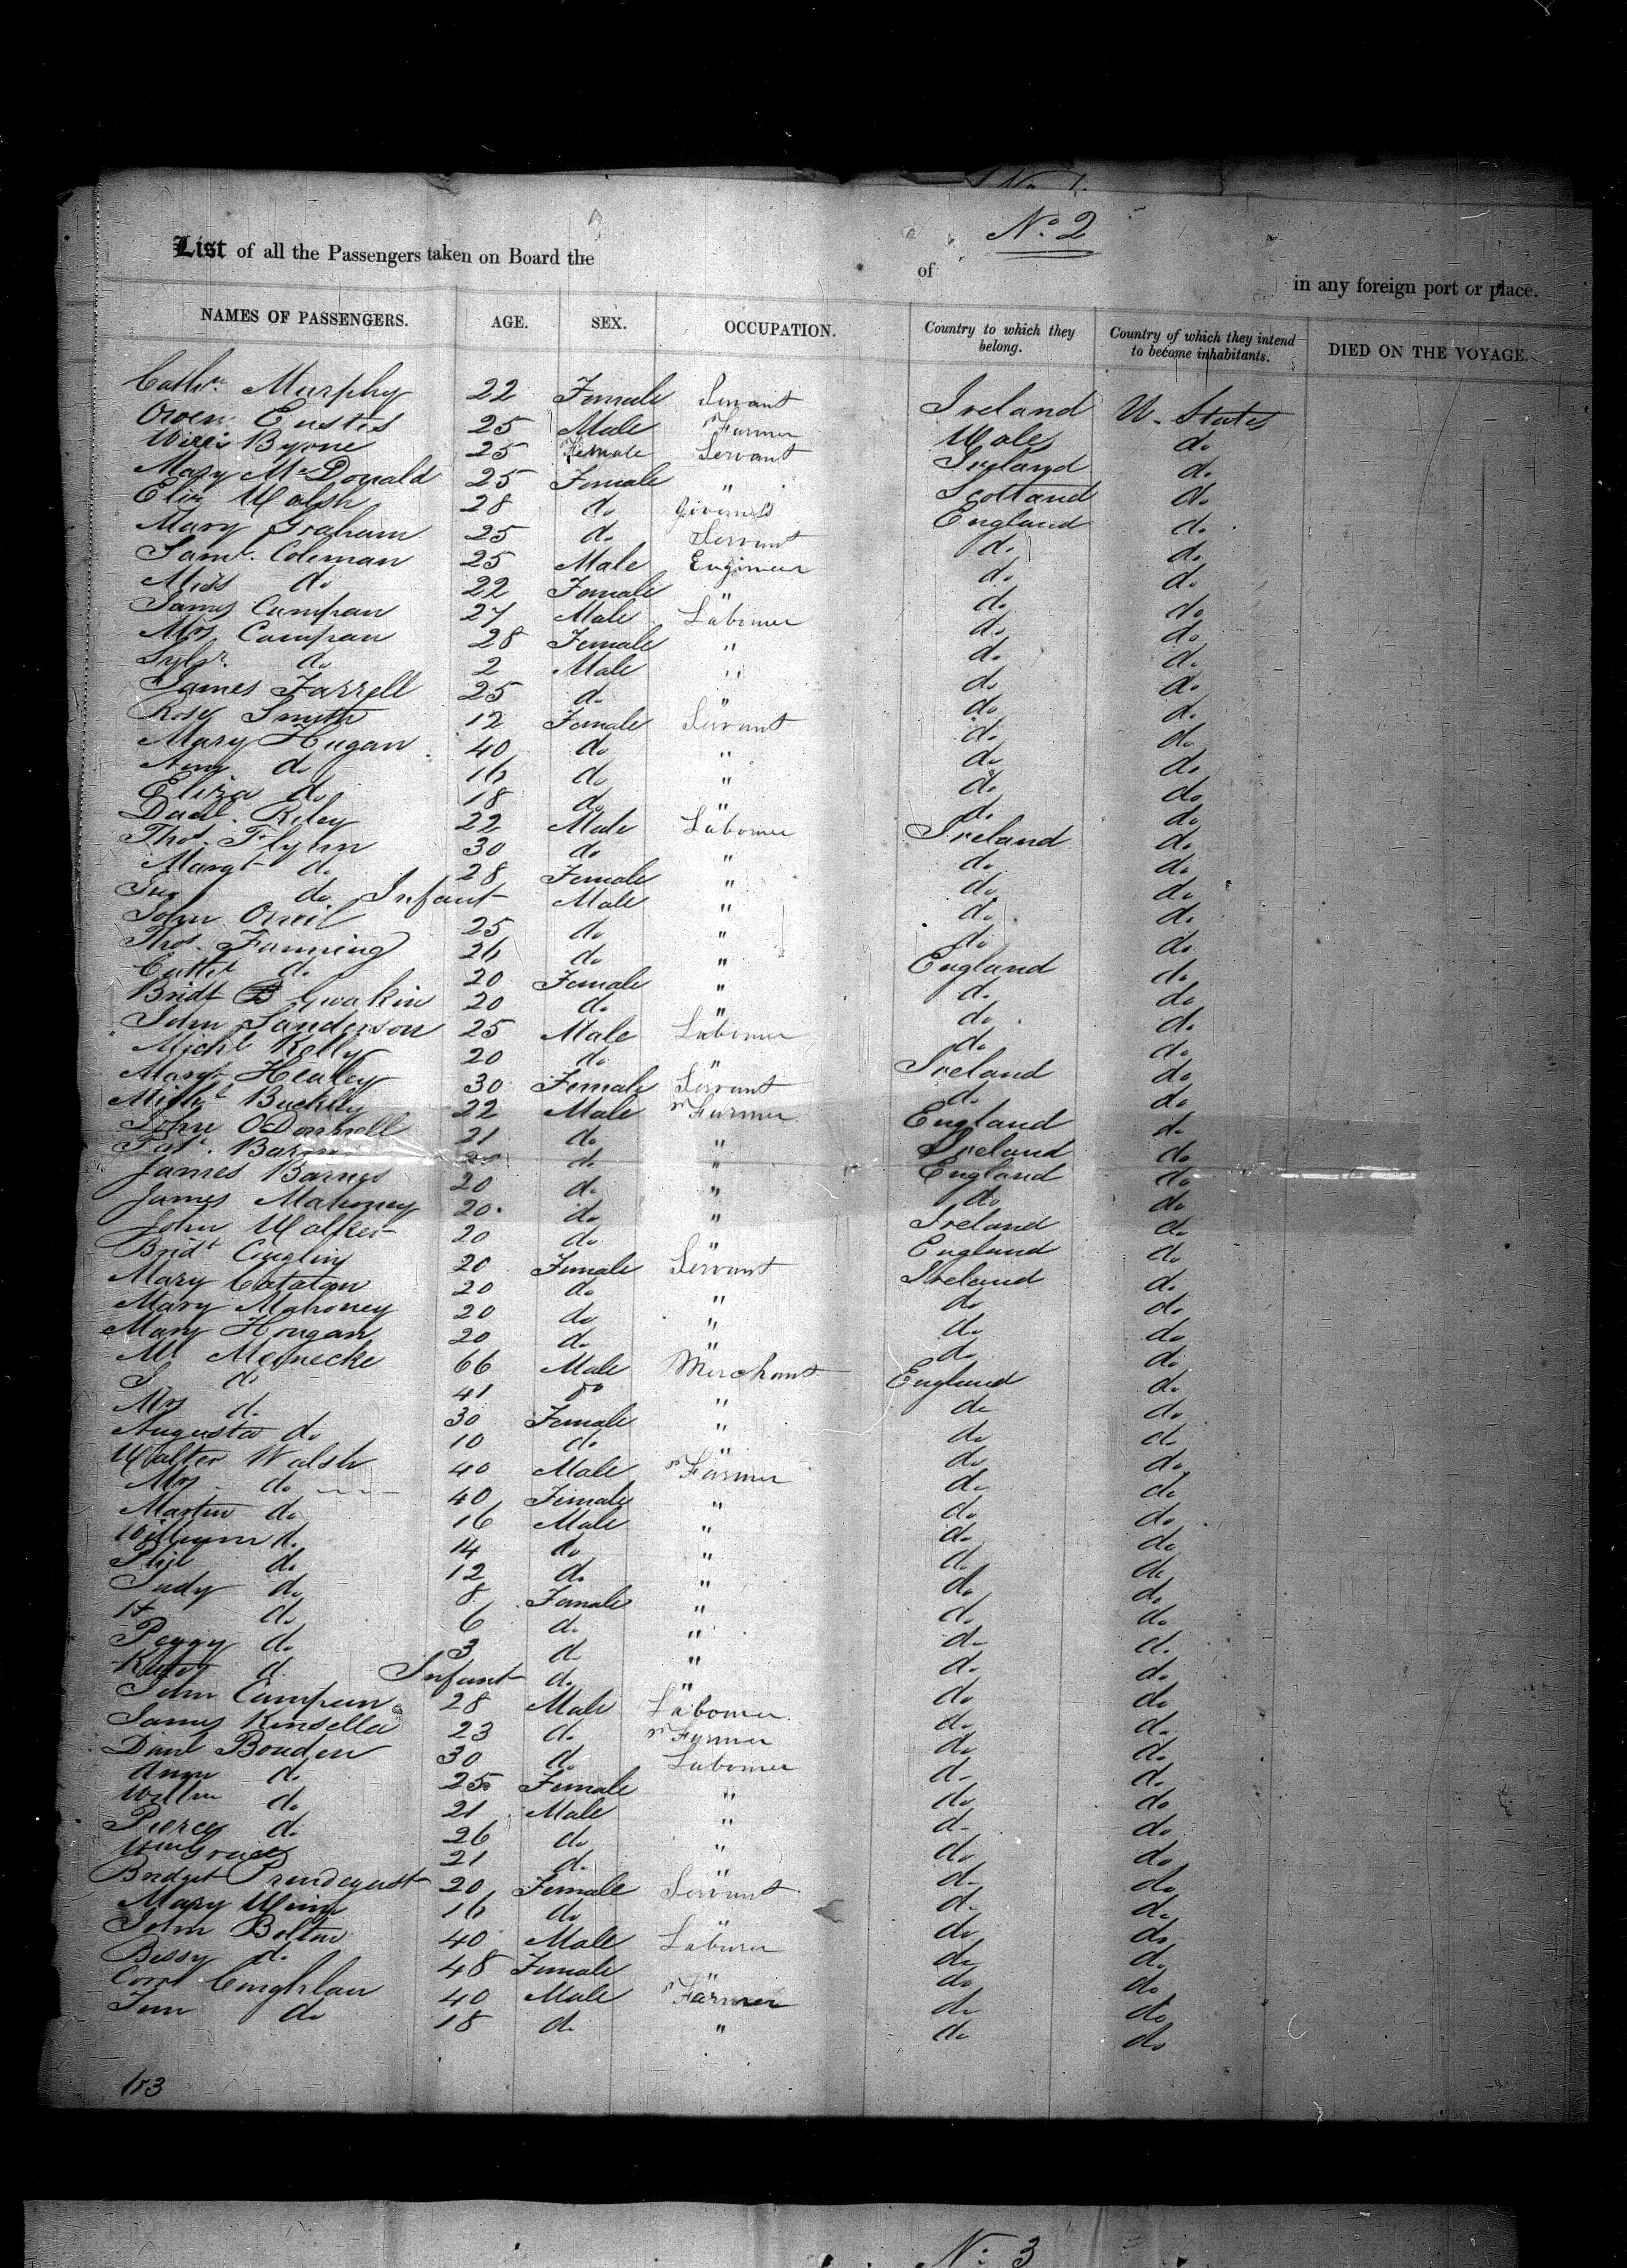 No 1.
No 2
List of all the Passengers taken on Board the of in any foreign port or place.
NAMES OF PASSENGERS. AGE. SEX. OCCUPATION. Country to which they belong. Country of which they intend to become inhabitants. DIED ON THE VOYAGE.
Cathn. Murphy 22 Female Servant Ireland U. States
Owen Eustis 25 Male Farmer Wales do
Byrne 25 Female Servant Ireland do
Mary McDonald 25 Female " Scotland do
Eliz Walsh 28 do Governess England do
Mary Graham 25 do Servant do do
Saml. Coleman 25 Male Engineer do do
Miss do 22 Female " do do
James Campan 27 Male Labourer do do
Mrs Campan 28 Female " do do
do 2 Male " do do
James Farrell 25 do " do do
Rosey Smith 12 Female Servant do do
Mary Hugan 40 do " do do
Amy do 16 do " do do
Eliza do 18 do " do do
Danl. Riley 22 Male Labourer Ireland do
Thos. Flynn 30 do " do do
Margt do 28 Female " do do
Jno do Infant Male " do do
John Orvil 25 do " do do
Thos. Fanning 26 do " England do
Cathe do 20 Female " do do
Bridt Gwakin 20 do " do do
John Sanderson 25 Male Labourer do do
Michl Kelly 20 do " Ireland do
Margt Healey 30 Female Servant do do
Michl Buckley 22 Male Farmer England do
John O'Donnell 21 do " Ireland do
Patk. do " England do
James Barnes 20 do " do do
James Mahoney 20 do " Ireland do
John Walker 20 do " England do
Bridt Cuglin 20 Female Servant Ireland do
Mary Cataton 20 do " do do
Mary Mahoney 20 do " do do
Mary Hougan 20 do " do do
Mr Meinecke 66 Male Merchant England do
J do 41 do " do do
Mrs do 30 Female " do do
Augusta do 10 do " do do
Walter Walsh 40 Male Farmer do do
Mrs do 40 Female " do do
Martin do 16 Male " do do
William do 14 do " do do
Phil do 12 do " do do
Judy do 8 Female " do do
do 6 do " do do
Peggy do 3 do " do do
Katey do Infant do " do do
John Campean 28 Male Labourer do do
James Kinsella 23 do Farmer do do
Danl Bouden 30 do Labourer do do
Anne do 25 Female " do do
Willm do 21 Male " do do
Pierce do 26 do " do do
Wm Grace 21 do " do do
Bridget Prendegast 20 Female Servant do do
Mary 16 do " do do
John Bolton 40 Male Labourer do do
Bessy do 48 Female " do do
Corns Coughlan 40 Male Farmer do do
do 18 do " do do
183
No 3